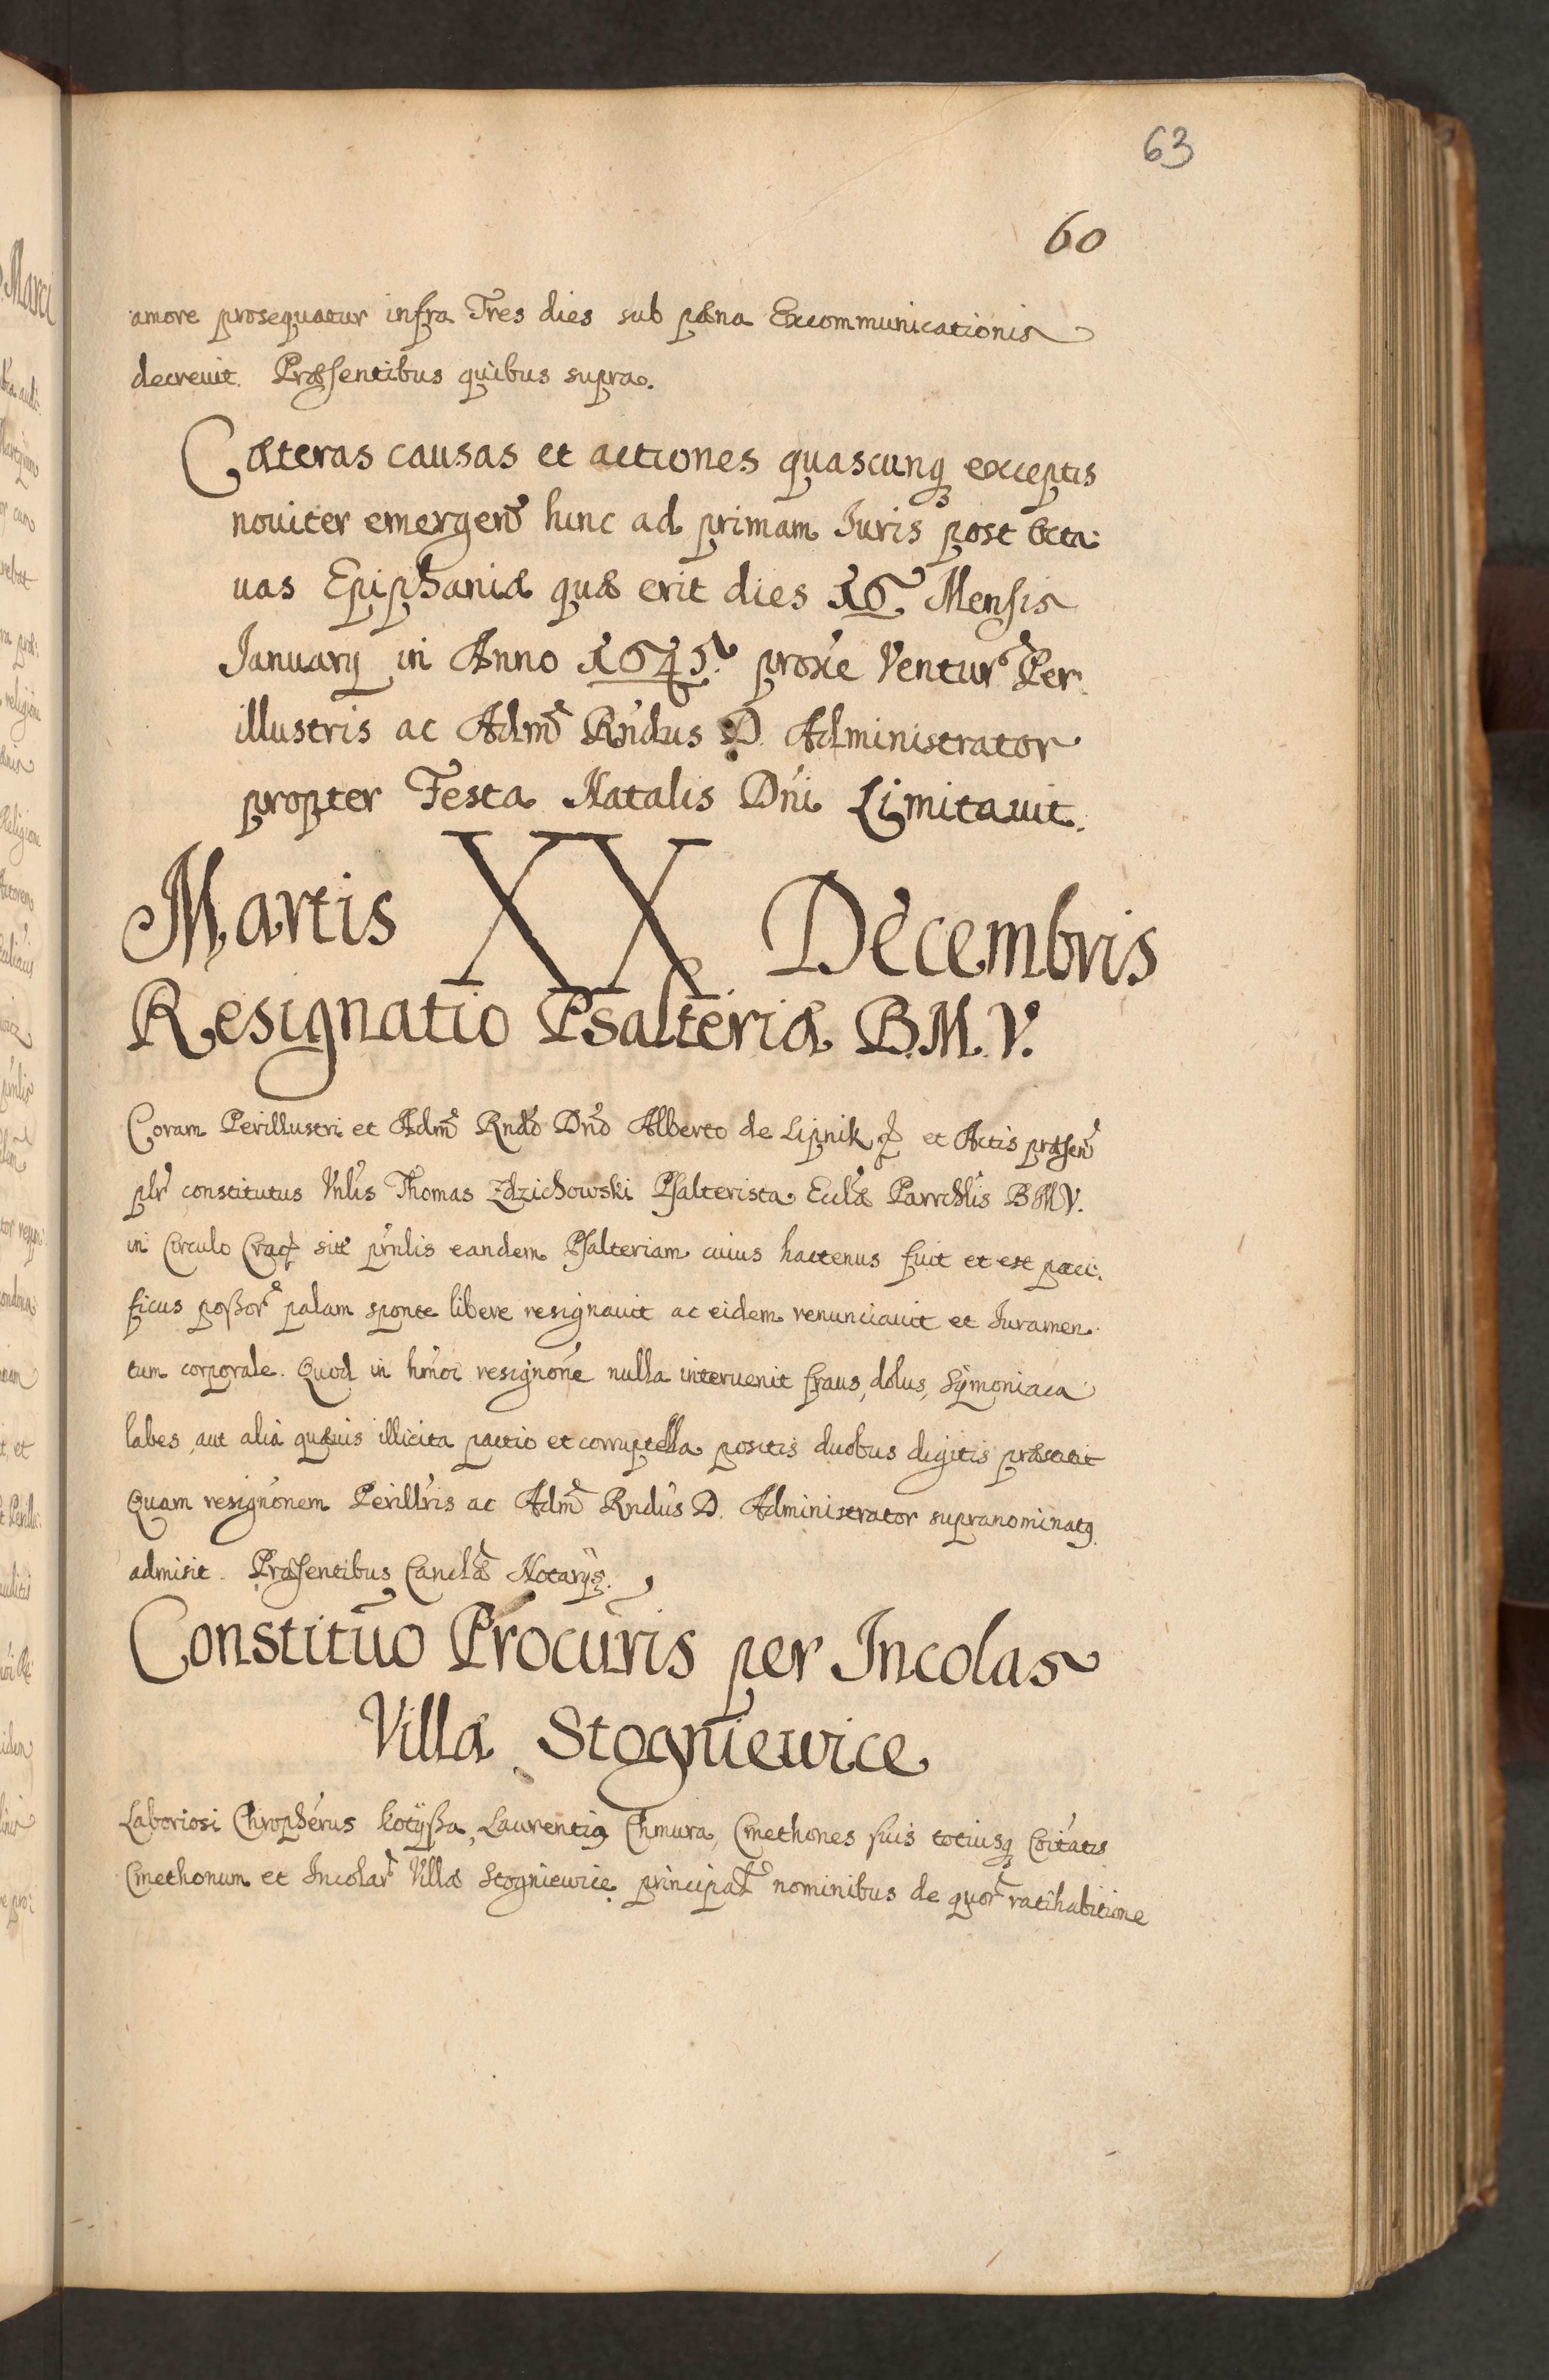 63
60
amore prosequatur infra Tres dies sub pæna Excommunicationis
decreuit. Præsentibus quibus supra.
Cæteras causas et actiones quascunq̃ exceptis
nouiter emergen̄ hinc ad primam Iuris post octa:
uas Epiphaniæ quæ erit dies 16. Mensis
Ianuarij in Anno 1645. proxe Ventur Per
illustris ac Adm̃ Rńdus D. Administrator
propter Festa Natalis Dńi Limitauit.
Martis XX Decembris
Resignatio Psalteriæ B.M.V.
Coram Perillustri et Adm̃ Rndo Dno Alberto de Lipnik et Actis præsen̄
plr constitutus Vnlis Thomas Zdzichowski Psalterista Ecclæ Parrchlis B M V.
in Circulo Crac sitæ prnlis eandem Psalteriam cuius hactenus fuit et est paci:
ficus poßor palam sponte libere resignauit ac eidem renunciauit et Iuramen
tum corporale. Quod in hmoi resignone nulla interuenit fraus, dolus, Symoniaca
labes, aut alia quæuis illicita pactio et corruptella positis duobus digitis præstitit
Quam resignonem Perillris ac Adm̃ Rndus D. Administrator supranominatq
admisit. Præsentibus Canclæ Notarijs.
Constitũo Procũris per Incolas
Villæ Stogniewice
Laboriosi Chropherus Kotyßa, Laurentiq Chmura, Cmethones suis totiusq̃ Coitatis
Cmethonum et Incolar Villæ Stogniewice principal nominibus de quor ratihabitione